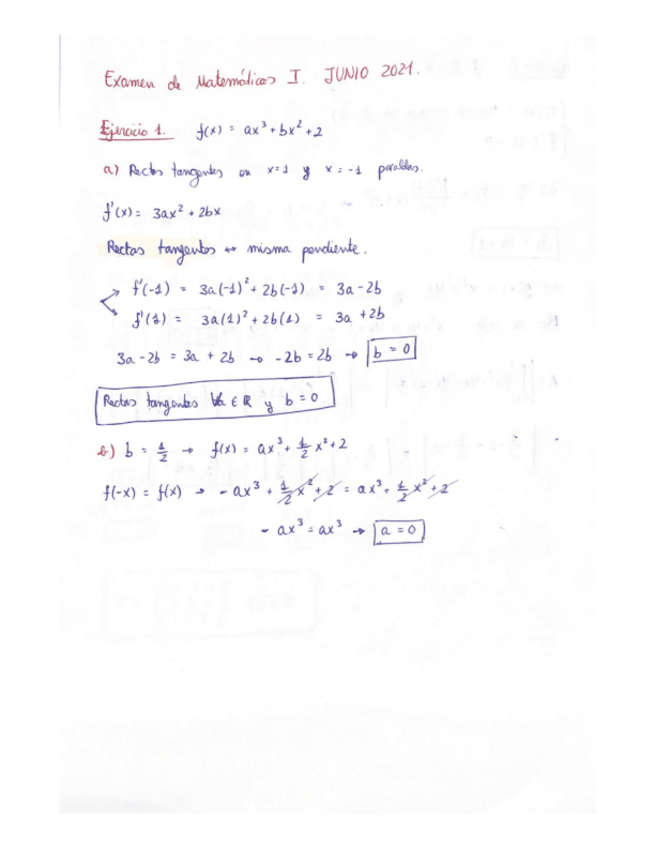 Examen de Matemáticas I. JUNIO 2021.
Ejercicio 1. f(x) = ax³ + bx² + 2
a) Rectas tangentes en x=1 y x = -1 paralelas.
f'(x) = 3ax² + 2bx
Rectas tangentes ↔ misma pendiente.
f'(-1) = 3a(-1)² + 2b(-1) = 3a - 2b
f'(1) = 3a(1)² + 2b(1) = 3a + 2b
3a - 2b = 3a + 2b → -2b = 2b → b = 0
Rectas tangentes ∀a ∈ R y b = 0
b) b = 1/2 → f(x) = ax³ + 1/2 x² + 2
f(-x) = f(x) → - ax³ + 1/2 x² + 2 = ax³ + 1/2 x² + 2
- ax³ = ax³ → a = 0